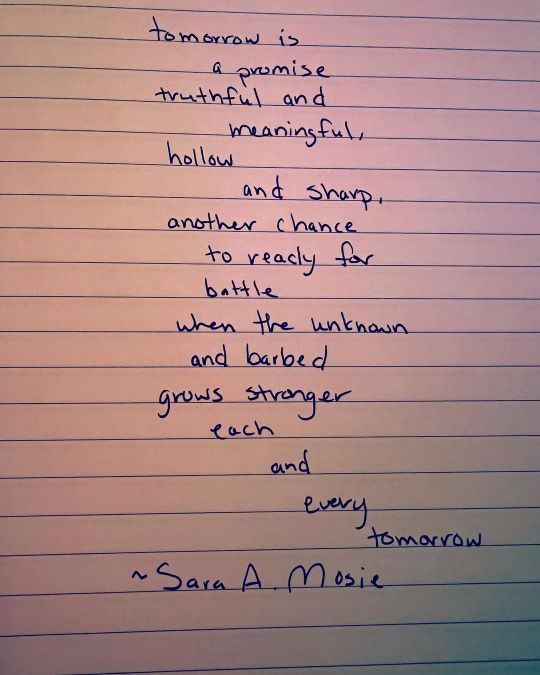 tomorrow is
a promise
truthful and
meaningful,
hollow
and sharp,
another chance
to ready for
battle
when the unknown
and barbed
grows stronger
each
and
every
tomorrow
~ Sara A. Mosie